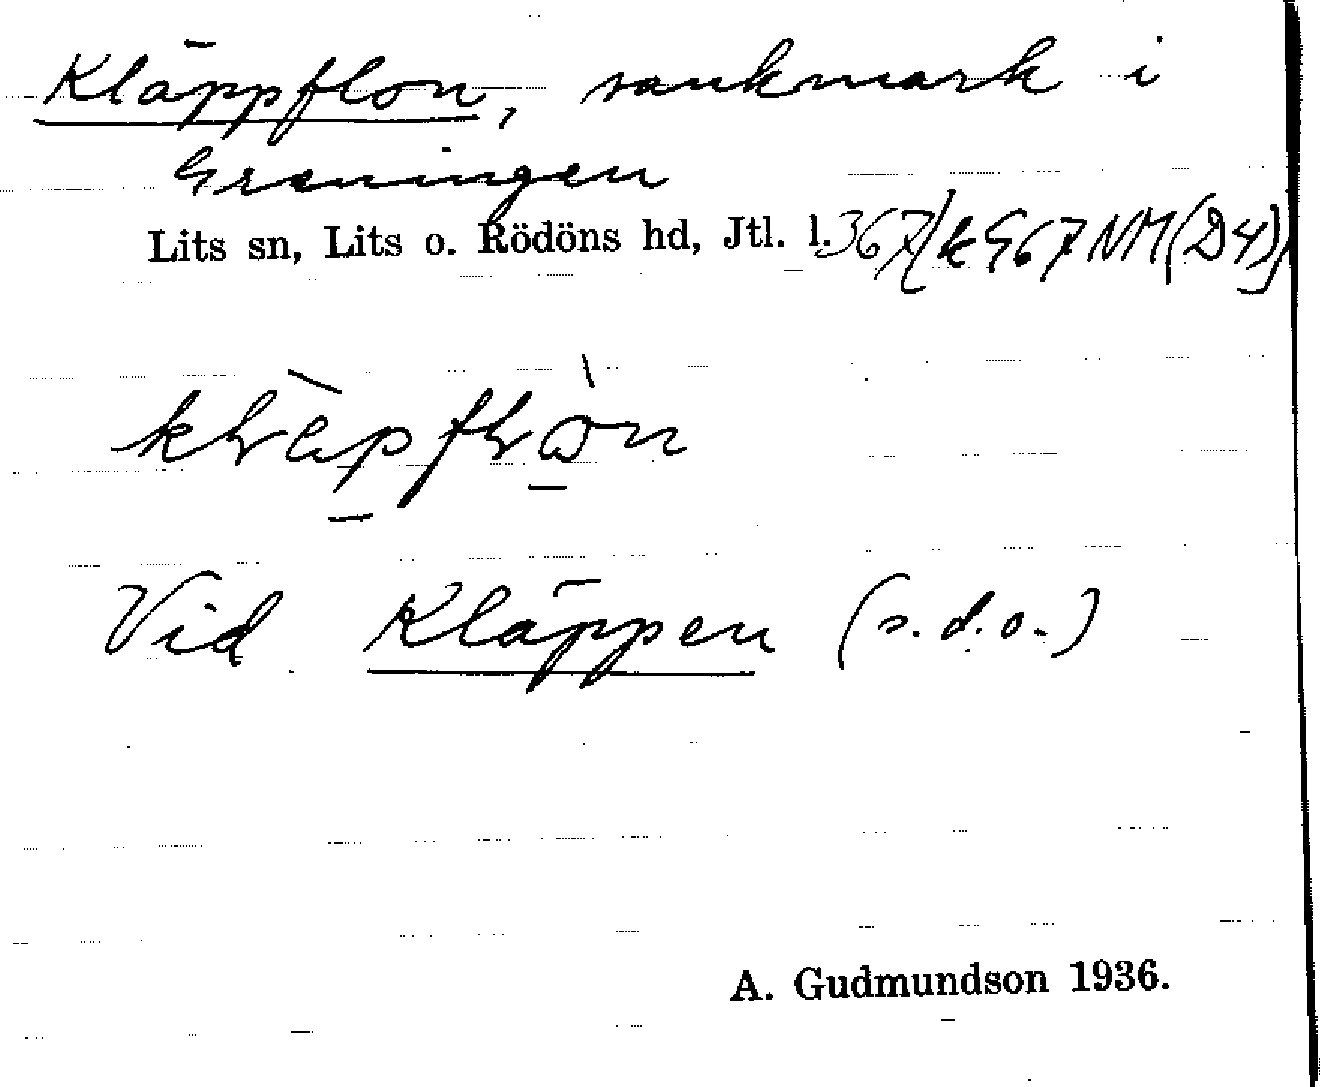 Kläppflon, sankmark i
Greningen
Lits sn, Lits o. Rödöns hd, Jtl. l.
Vid Kläppen (s.d.o.)
A. Gudmundson 1936.